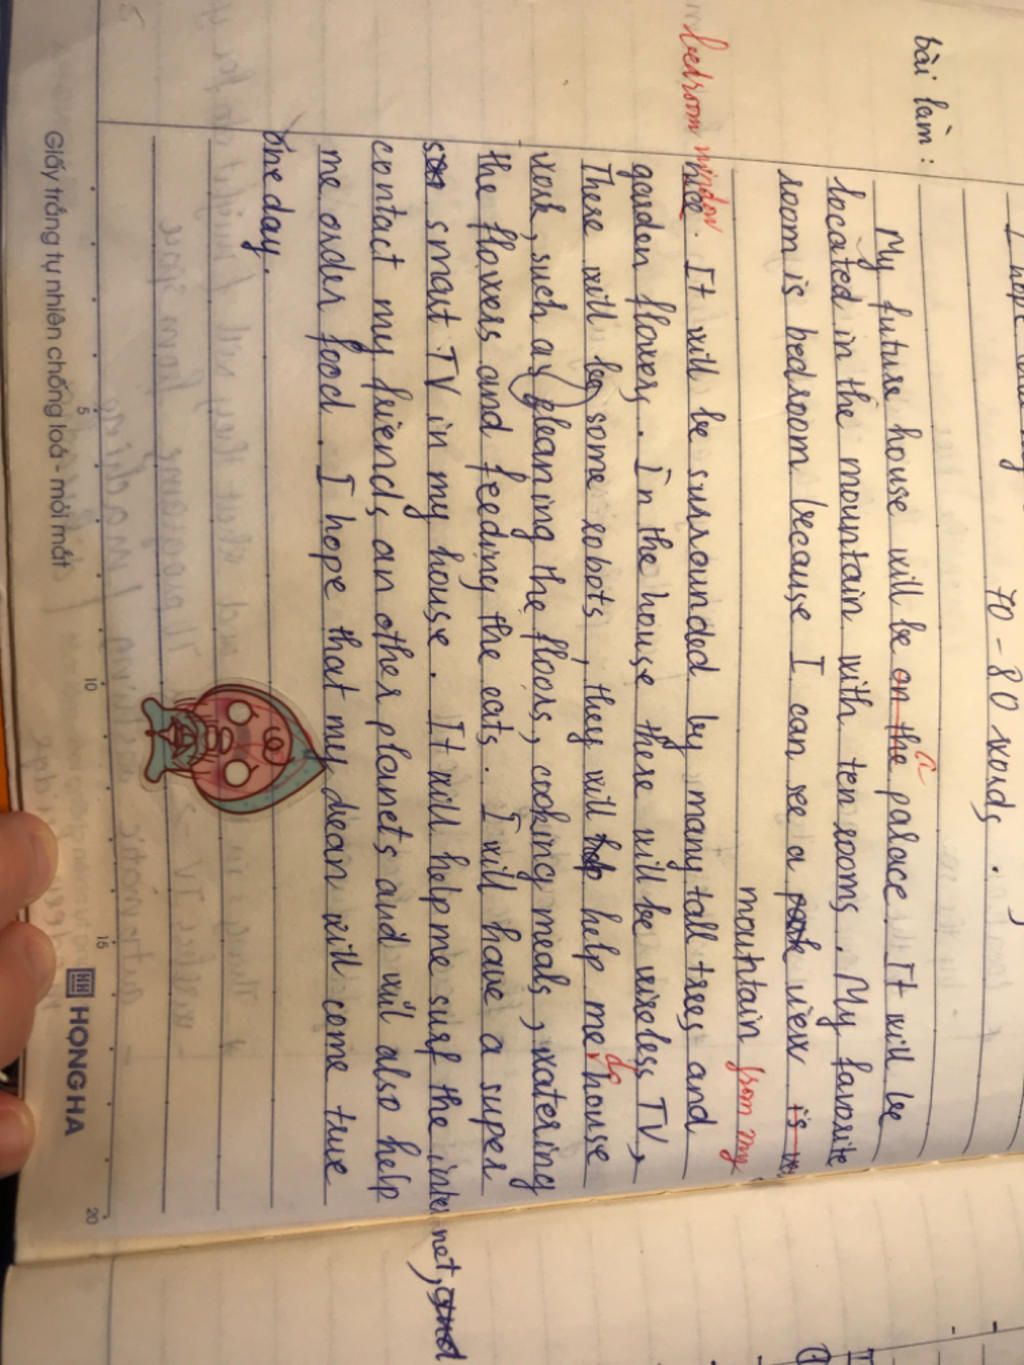 70 - 80 words.
bài làm :
My future house will be on the a palace. It will be
located in the mountain with ten rooms. My favorite
room is bedroom because I can see a view is
mountain from my
bedroom window
nice. It will be surrounded by many tall trees and
garden flowers. In the house there will be wireless TV,
There will be some robots, they will help me do house
work, such as cleaning the floors, cooking meals, watering
the flowers and feeding the cats. I will have a super
smart TV in my house. It will help me surf the internet, and
contact my friends an other planets and will also help
me order food. I hope that my dream will come true
one day.
Giấy trắng tự nhiên chống loá - mỏi mắt
5
10
15
20
HH HONG HA